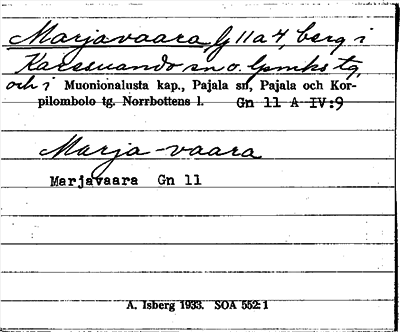 Marjavaara, G 11 a 4, berg i
Karesuando sn o. lpmks tg,
och i Muonionalusta kap., Pajala sn, Pajala och Kor-
pilombolo tg. Norrbottens l. Gn 11 A IV:9
Marja-vaara
Marjavaara Gn 11
A. Isberg 1933. SOA 552:1